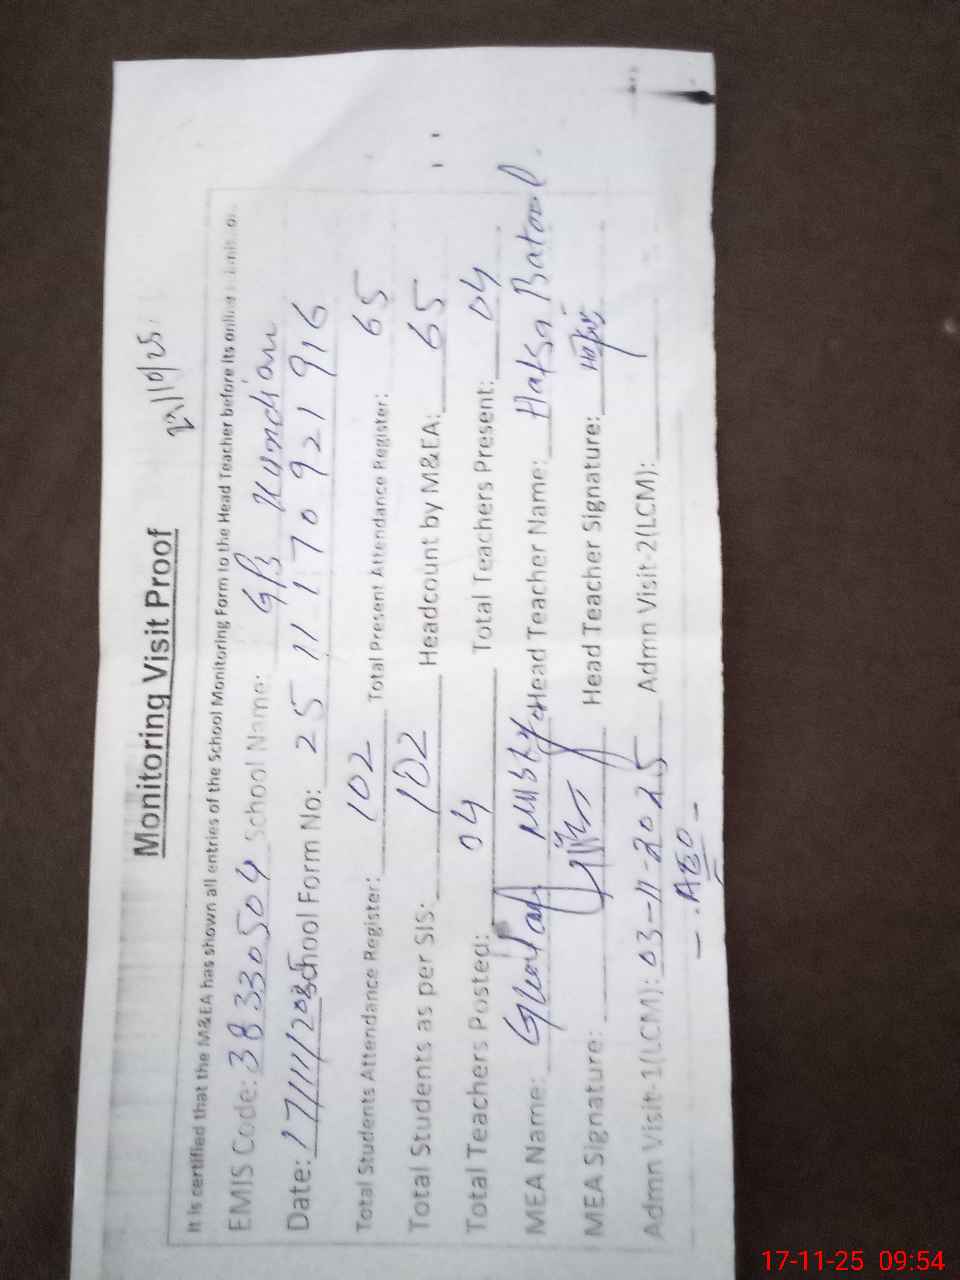 Monitoring Visit Proof
It is certified that the M&EA has shown all entries of the School Monitoring Form to the Head Teacher before its online
EMIS Code: 38330504 School Name: Kundian
Date: 17/11/2025 School Form No: 25 11 170921916
Total Students Attendance Register: 102 Total Present Attendance Register: 65
Total Students as per SIS: 102 Headcount by M&EA: 65
Total Teachers Posted: 04 Total Teachers Present: 04
MEA Name: Head Teacher Name: Hafsa Batool
MEA Signature: Head Teacher Signature:
Admn Visit-1(LCM): 03-11-2025 Admn Visit-2(LCM):
- AEO -
17-11-25 09:54